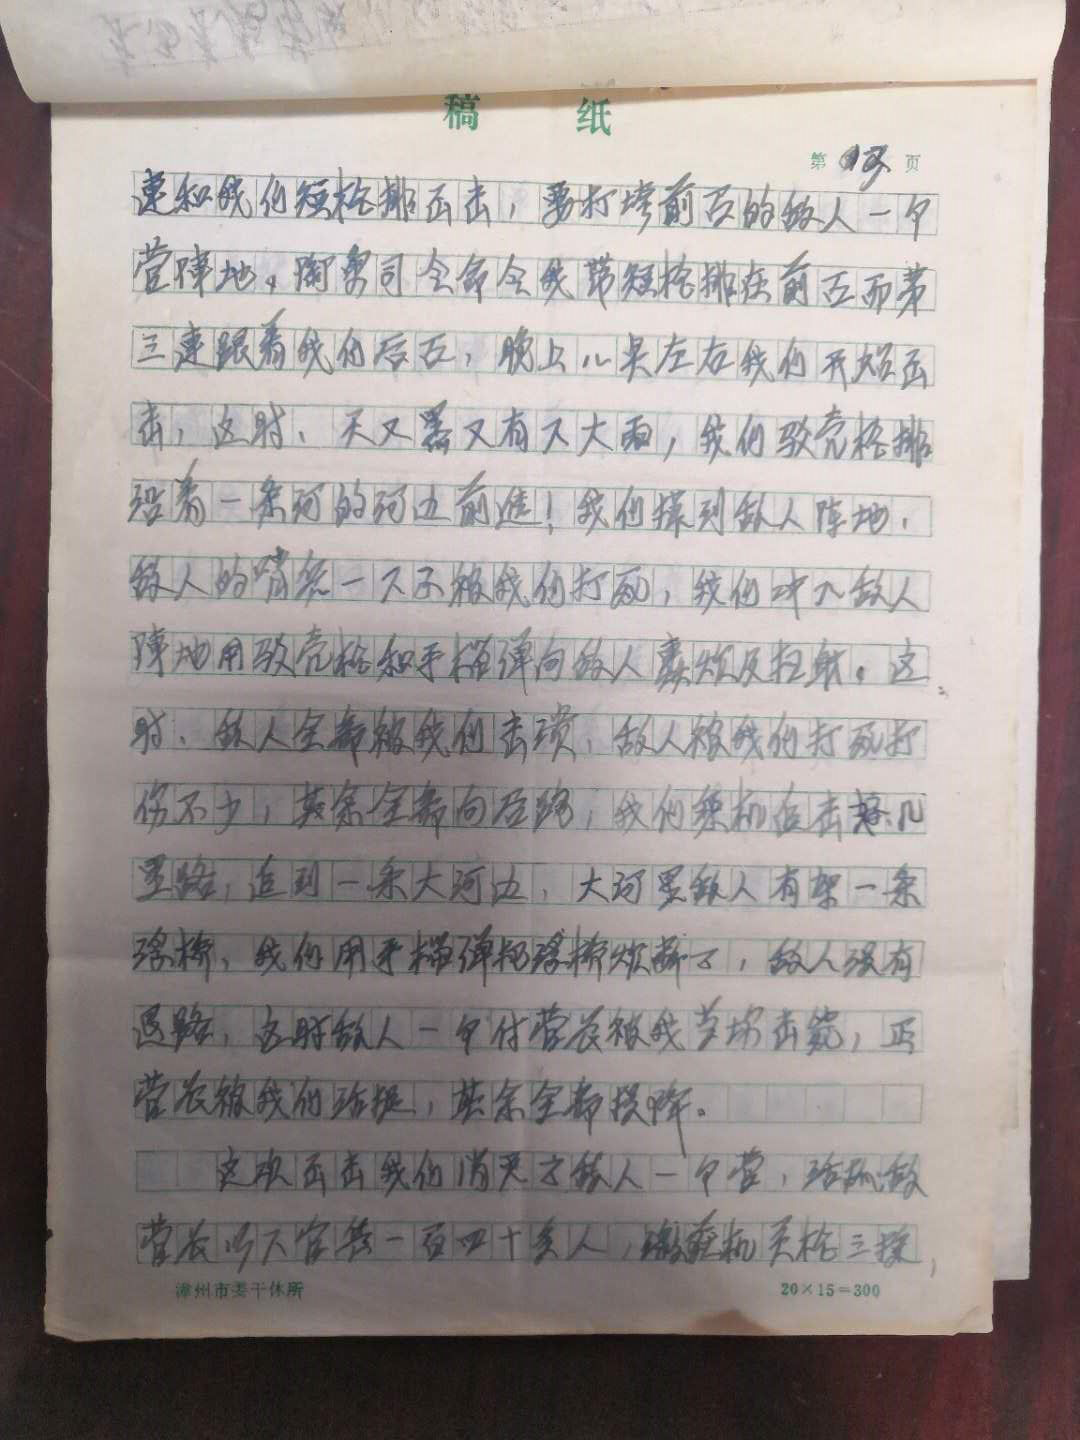 稿 纸
第 13 页
连和我们短枪排出击，要打垮前面的敌人一个
营阵地。陶司令命令我带短枪排在前面而第
三连跟着我们后面，晚上八点左右我们开始出
击，这时、天又黑又有下大雨，我们驳壳枪排
沿着一条河的河边前进！我们摸到敌人阵地，
敌人的哨兵一下子被我们打死，我们冲入敌人
阵地用驳壳枪和手榴弹向敌人轰炸及扫射。这
时、敌人全部被我们击溃，敌人被我们打死打
伤不少，其余全部向后跑，我们乘机追击好几
里路，追到一条大河边，大河里敌人有架一条
浮桥，我们用手榴弹把浮桥炸断了，敌人没有
退路，这时敌人一个付营长被我当场击毙，正
营长被我们活捉，其余全部投降。
这次出击我们消灭了敌人一个营，活抓敌
营长以下官兵一百四十多人，缴获机关枪三挺，
漳州市委干休所 20×15=300